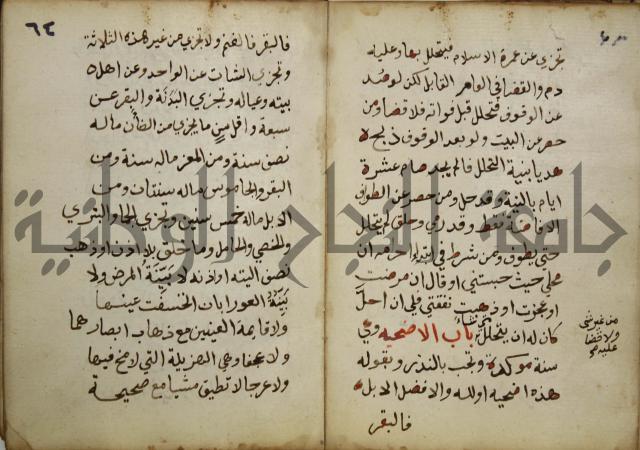 تجزي عن عمرة الاسلام فيتحلل بها وعليه
دم والقضا في العام القابل لكن لو صد
عن الوقوف فتحلل قبل فواته فلا قضا ومن
حصر عن البيت ولو بعد الوقوف ذبح
هديا بنية التحلل فان لم يجد صام عشرة
ايام بالنية وقد حل ومن حصر عن طواف
الافاضة فقط وقد رمي وحلق لم يتحلل
حتي يطوف ومن شرط في ابتداء احرامه ان
محلي حيث حبستني او قال ان مرضت
او عجزت او ذهبت نفقتي فلي ان احل
كان له ان يتحلل باب الاضحيه وهي
سنة موكدة وتجب بالنذر وبقوله
هذه اضحيه او لله والافضل الابل
فالبقر
من غير شي
ولا قضا
عليه
٦٤
فالبقر فالغنم ولا تجزي من غير هذه الثلاثة
وتجزي الشات عن الواحد وعن اهل
بيته وعياله وتجزي البدنة والبقر عن
سبعة واقل سن ما يجزي من الضأن ماله
نصف سنة ومن المعز ماله سنة ومن
البقر والجاموس ماله سنتان ومن
الابل ماله خمس سنين وتجزي الجما والبتري
والخصي والحامل وما خلق بلا اذن او ذهب
نصف اليته او اذنه لا بينة المرض ولا
بينة العور بان انخسفت عينها
ولا قايمة العينين مع ذهاب ابصارهما
ولا عجفا وهي الهزيلة التي لا مخ فيها
ولا عرجا لا تطيق مشيا مع صحيحة
جامعة النجاح الوطنية